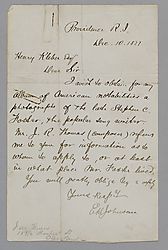 Providence R.I.
Dec. 10. 1887
Henry Kleber Esq
Dear Sir
I wish to obtain for my
album of American notabilities a
photograph of the late Stephen C.
Foster, the popular song writer
Mr. J. R. Thomas (composer) refers
me to you for information as to
whom to apply to, or at least
in what place Mr. Foster lived
You will greatly oblige by a reply
Yours Resp'y
Johnson